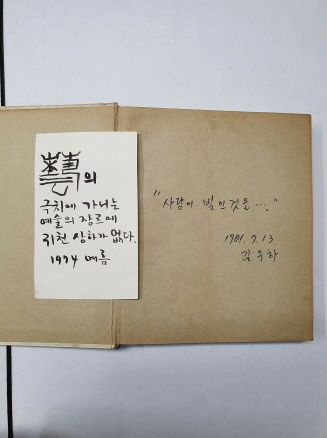 藝의
극치에 가서는
예술의 장르에
귀천 상하가 없다.
1974 여름
"사람이 빛인 것은…."
1981. 7. 13
김두하